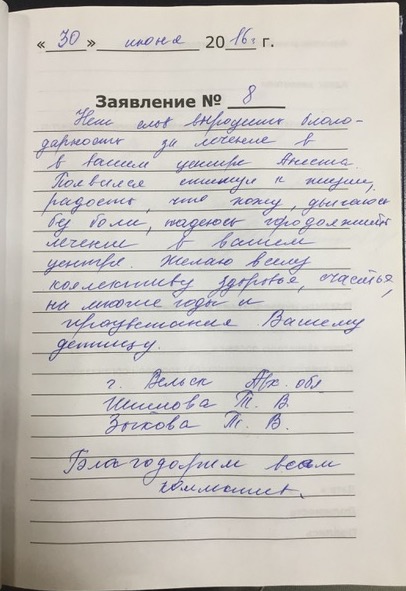 « 30 » июня 20 16г г.
Заявление № 8
Нет слов выразить благо-
дарность за лечение в
в вашем центре Анеста.
Появился стимул к жизни,
радость, что хожу, двигаюсь
бу боли, надеюсь продолжить
лечение в вашем
центре. Желаю всему
коллективу здоровья, счастья,
на многие годы и
процветания Вашему
детищу.
г. Вельск Арх. обл
Шилова Т. В.
Зыкова Т. В.
Благодарим всем